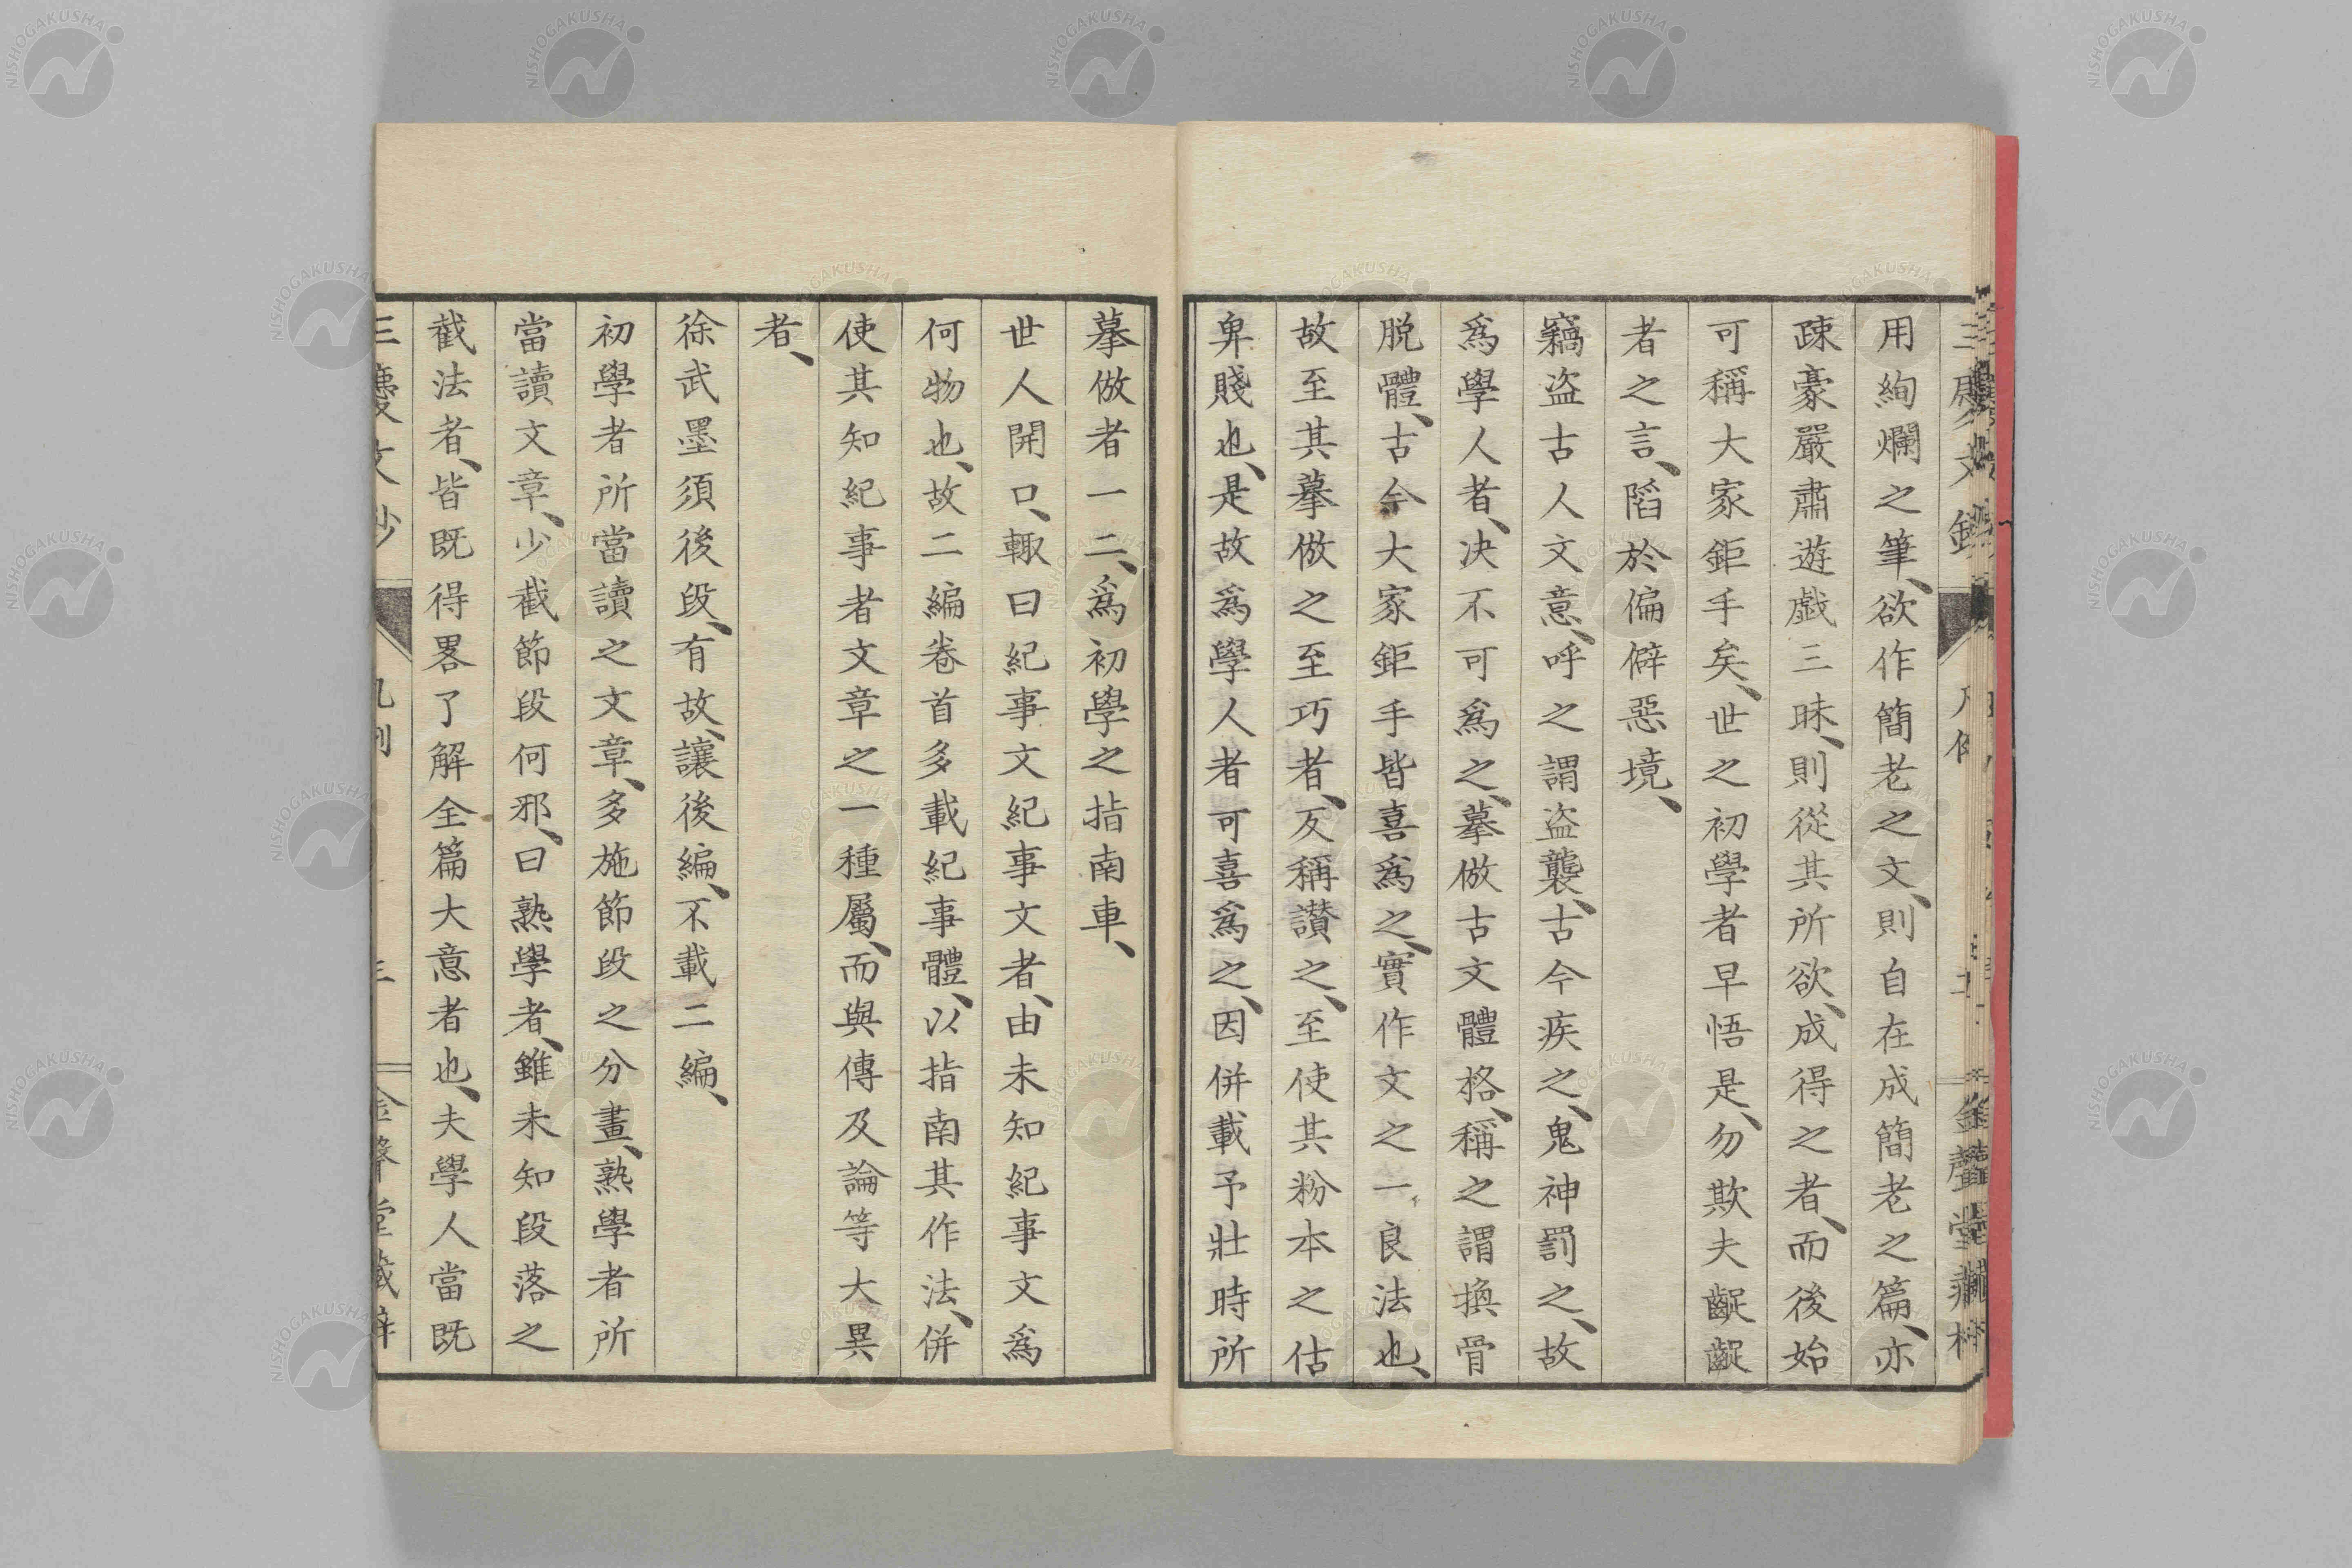 用絢爛之筆、欲作簡老之文、則自在成簡老之篇、亦
疎豪嚴肅遊戯三昧、則從其所欲、成得之者、而後始
可稱大家鉅手矣、世之初學者早悟是、勿欺夫齪齪
者之言、陷於偏僻惡境、
竊盗古人文意、呼之謂盗襲、古今疾之、鬼神罰之、故
爲學人者、决不可爲之、摹倣古文體格、稱之謂換骨
脱體、古今大家鉅手皆喜爲之、實作文之一良法也、
故至其摹倣之至巧者、反稱讃之、至使其粉本之估
卑賤也、是故爲學人者可喜爲之、因併載予壯時所
摹倣者一二、爲初學之指南車、
世人開口、輙曰紀事文紀事文者、由未知紀事文爲
何物也、故二編卷首多載紀事體、以指南其作法、併
使其知紀事者文章之一種屬、而與傳及論等大異
者、
徐武墨須後段、有故、讓後編、不載二編、
初學者所當讀之文章、多施節段之分畫、熟學者所
當讀文章、少截節段何邪、曰熟學者、雖未知段落之
截法者、皆既得畧了解全篇大意者也、夫學人當既
NISHOGAKUSHA